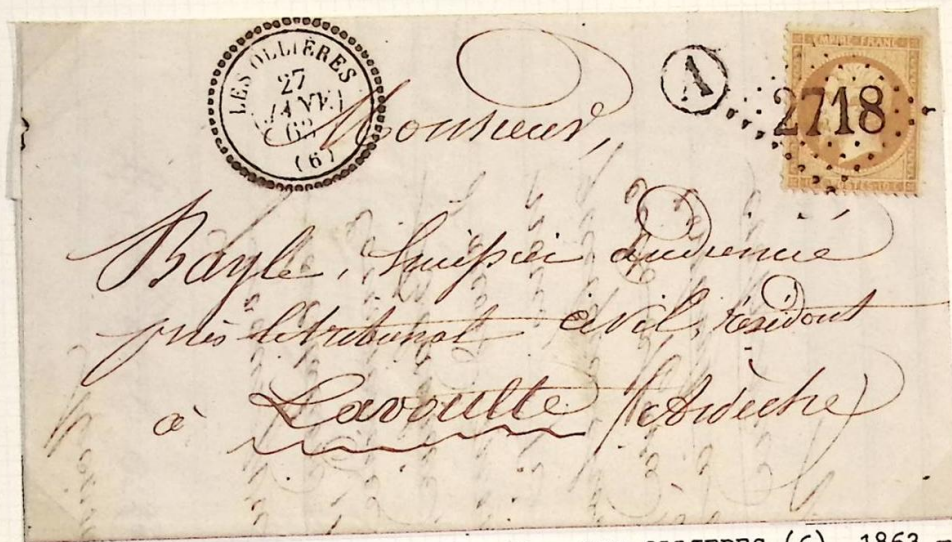 LES OLLIÈRES
27
JANV.
63
(6)
A
EMPIRE FRANC
2718
POSTES
Monsieur,
Bayle, huissier audiencié
près le tribunal civil, résidant
à Lavoulte (Ardèche)
(6) 1863 -